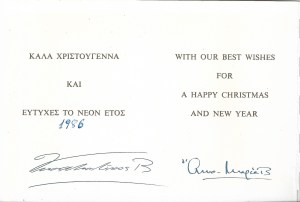 ΚΑΛΑ ΧΡΙΣΤΟΥΓΕΝΝΑ
ΚΑΙ
ΕΥΤΥΧΕΣ ΤΟ ΝΕΟΝ ΕΤΟΣ
1986
Κωνσταντίνος Β
WITH OUR BEST WISHES
FOR
A HAPPY CHRISTMAS
AND NEW YEAR
Άννα-Μαρία Β